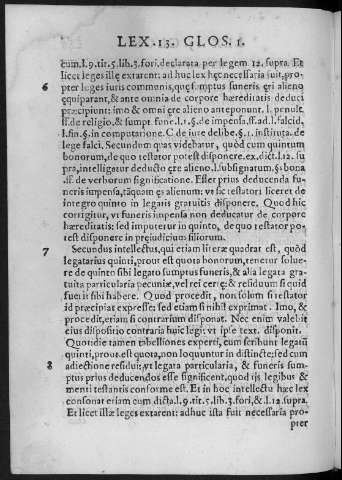 LEX .13. GLOS. I.
cum.l.9.tit.5.lib.3.fori.declarata per legem 12.supra. Et
licet leges illę extarent: ad huc lex hęc necessaria suit, pro-
pter leges iuris communis, quę sumptus funeris ęri alieno
6 ęquiparant, & ante omnia de corpore hæreditatis deduci
pręcipiunt: imo & omni ęre alieno anteponunt. l. penult.
ff. de religio, & sumpt. fune. l.1. §. de impensa, ff. ad l. falcid,
l. fin. §. in computatione. C. de iure delibe. §.1. instituta. de
lege falci. Secundum quas videbatur, quòd cum quintum
bonorum, de quo testator potest disponere. ex. dict. l.12. su
pra, intelligatur deducto ęre alieno. l. subsignatum. §. bona
.ff. de verborum significatione. Esset prius deducenda fu-
neris impensa, tãquam ęs alienum: vt sic testatori liceret de
integro quinto in legatis gratuitis disponere. Quod hic
corrigitur, vt funeris impensa non deducatur de corpore
hæreditatis: sed imputetur in quinto, de quo testator po-
test disponere in prejudicium filiorum.
7 Secundus intellectus, qui etiam literæ quadrat est, quòd
legatarius quinti, prout est quota bonorum, tenetur solue-
re de quinto sibi legato sumptus funeris, & alia legata gra-
tuita particularia pecuniæ, vel rei certę: & residuum si quid
fuerit sibi habere. Quod procedit, non solum si testator
id præcipiat expresse: sed etiam si nihil exprimat. Imo, &
procedit, etiam si contrarium disponat. Nec enim valebit
eius dispositio contraria huic legi: vt ipse text. disponit.
Quotidie tamen tabelliones experti, cum scribunt legatũ
quinti, prout est quota, non loquuntur in distincte; sed cum
8 adiectione residui: vt legata particularia, & funeris sum-
ptus prius deducendos esse significent, quod ijs legibus &
menti testantis conforme est. Et in hoc intellectu hæc lex
consonat etiam cum dicta. l.9. tit.5. lib.3. fori, & .l.12. supra.
Et licet illæ leges extarent: adhuc ista fuit necessaria pro-
pter